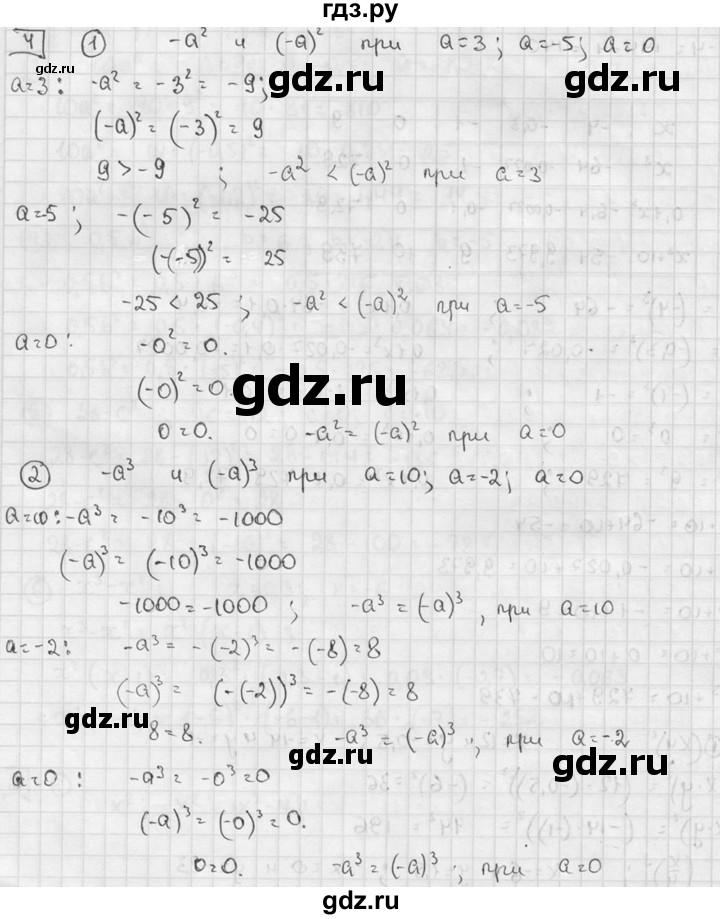 гдз.ру
4 (1) -a² и (-a)² при a=3; a=-5; a=0
gdz.ru
a=3: -a² = -3² = -9;
gdz.ru
(-a)² = (-3)² = 9
9 > -9 ; -a² < (-a)² при a=3
a=-5; -(-5)² = -25
(-(-5))² = 25
gdz.ru
-25 < 25 ; -a² < (-a)² при a=-5
a=0: -0² = 0.
(-0)² = 0.
gdz.ru
0=0. -a² = (-a)² при a=0
(2) -a³ и (-a)³ при a=10; a=-2; a=0
a=10: -a³ = -10³ = -1000
gdz.ru
(-a)³ = (-10)³ = -1000
-1000 = -1000 ; -a³ = (-a)³, при a=10
a=-2: -a³ = -(-2)³ = -(-8) = 8
(-a)³ = (-(-2))³ = -(-8) = 8
gdz.ru
8=8. -a³ = (-a)³; при a=-2
gdz.ru
a=0: -a³ = -0³ = 0
(-a)³ = (-0)³ = 0.
0=0. -a³ = (-a)³; при a=0
gdz.ru